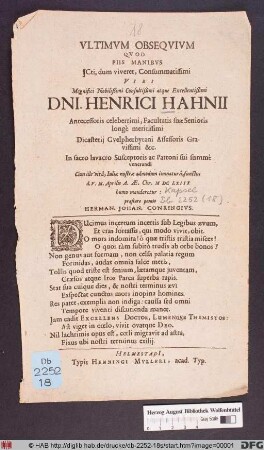 18
VLTIMVM OBSEQVIVM
QVOD
PIIS MANIBVS
JCti, dum viveret, Consummatissimi
VIRI
Magnifici Nobilissimi Consultissimi atque Excellentissimi
DNI. HENRICI HAHNII
Antecessoris celeberrimi, Facultatis suæ Senioris
longè meritissimi
Dicasterij Guelpherbytani Assessoris Gra-
vissimi &c.
In sacro lavacro Susceptoris ac Patroni sui summè
venerandi
Cum
d. V. M. Aprilis A. Ær. Chr. M DC LXIIX
humo mandaretur
præstare
HERMAN. JOHAN. CONRINGIVS.
DUcimus incertum incertis sub Legibus ævum,
Et cras forsitis, qui modo vivit, obit.
O mors indomita! ô quæ tristia tristia misces!
O quot jam subitò trudis ab orbe bonos?
Non genus aut formam, non celsa palatia regum
Formidas, audat omnia falce metis.
Tollis quod triste est senium, letumque juventam,
Crasus atque Irus sparsa petis.
Stat sua cuique dies, & nostri terminus ævi
Exspectat cunctos mors inopina homines.
Res patet, exemplis non indiga: causa sed omni
Tempore viventi discutienda manet.
Jam cadit EXCELLENS DOCTOR, LUMENQUE THEMISTOS:
Ast viget in cœlo, vivit ovatque DEO.
Nil lachrimis opus est, cœli migravit ad astra,
Fixus ubi nostri terminus exilij.
HELMESTADI,
Typis HENNINGI MVLLERI, acad. Typ.
Db
2252
18
Herzog August Bibliothek Wolfenbüttel
© HAB http://diglib.hab.de/drucke/db-2252-18s/start.htm?image=00001
DFG